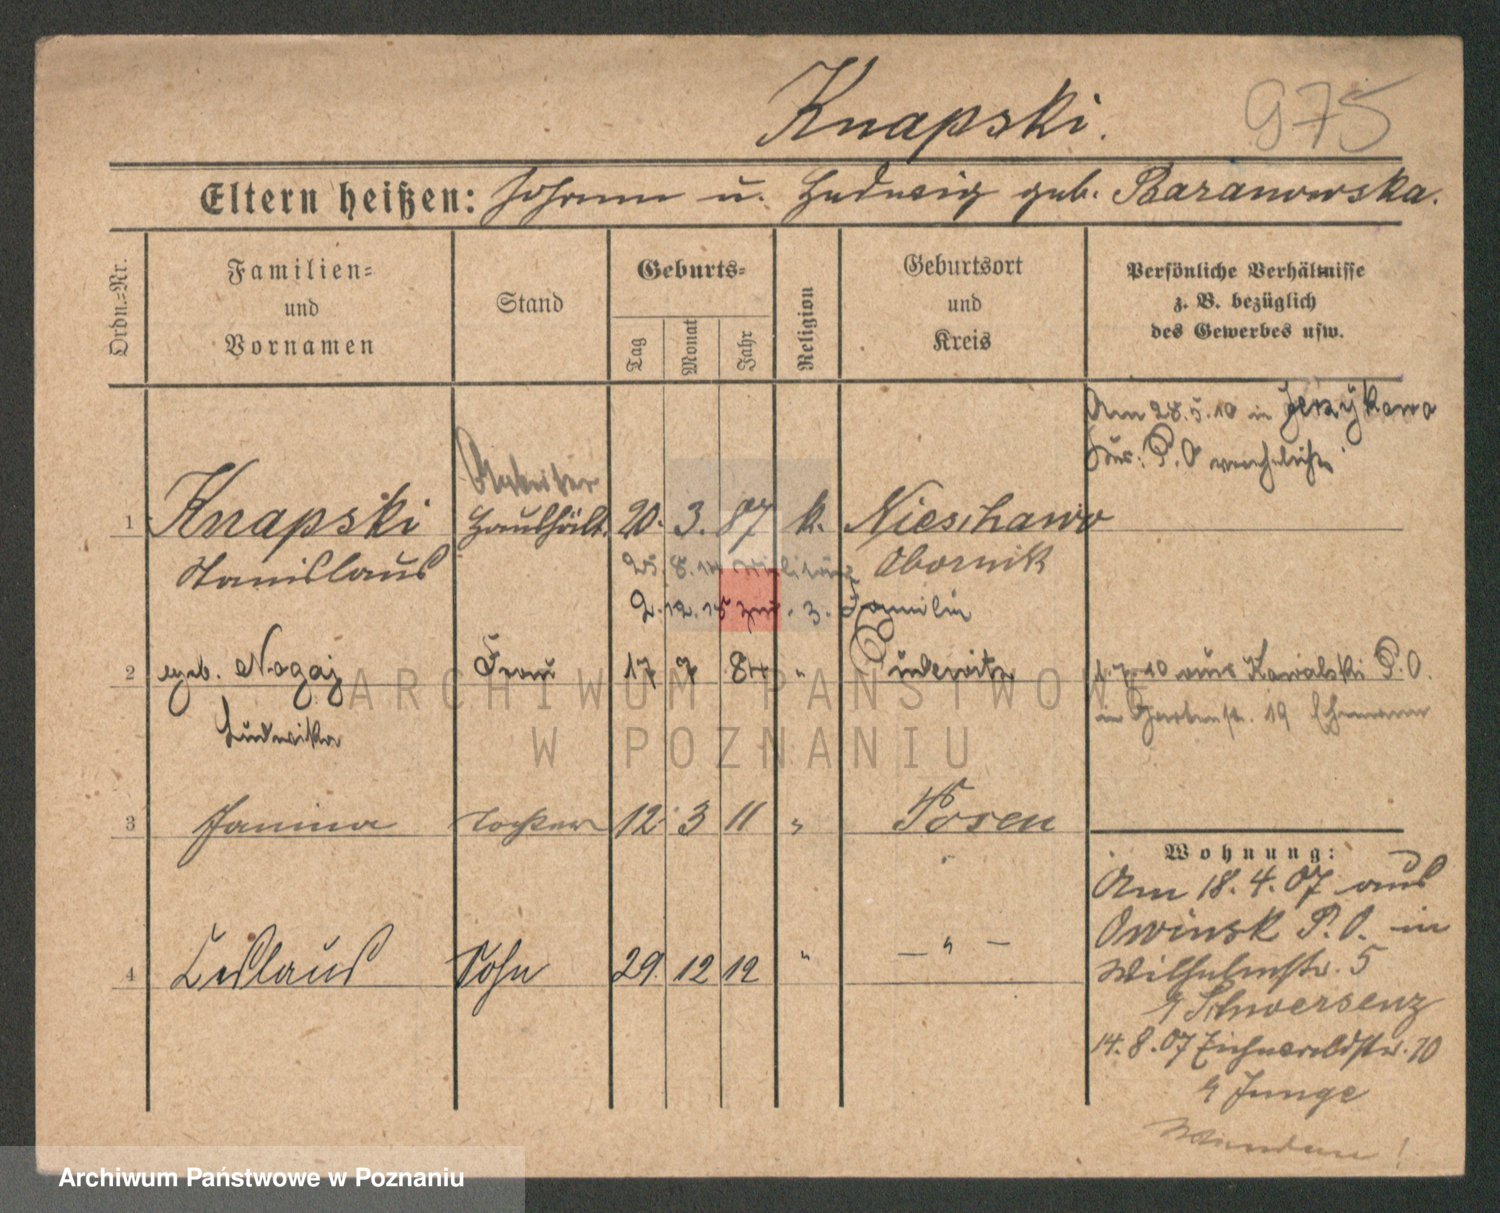 Knapski.
975
Eltern heißen: Johann u. Ludwig geb. Baranowska.
Ordn.=Nr.
Familien=
und
Vornamen
Stand
Geburts=
Tag
Monat
Jahr
Religion
Geburtsort
und
Kreis
Persönliche Verhältnisse
z. B. bezüglich
des Gewerbes usw.
Am 28.5.10 in Jerzykowo
Kr: P. O verehelicht
Arbeiter
1 Knapski Haushält. 20. 3. 87 k. Nieschawo
Stanislaus Obornik
25. 8. 14 Militär
2. 12. 15 zur. z. Familie
2 geb. Nogaj Frau 17 7 84 " Pudewitz
Ludwika
1. 7. 10 aus Kowalski P. O.
in Gartenstr. 19 Ehemann
3 Janina Tochter 12 3 11 " Posen
4 Ceslaus Sohn 29. 12 12 " — " —
Wohnung:
Am 18. 4. 07 aus
Owinsk P. O. in
Wilhelmstr. 5
b/ Schwersenz
14. 8. 07 Eichwaldstr. 10
b/ Junge
ARCHIWUM PAŃSTWOWE
W POZNANIU
Archiwum Państwowe w Poznaniu